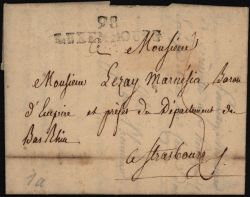 98
à Monsieur
Monsieur Lezay Marnesia, Baron
d'Empire et préfet du Département du
Bas Rhin
à Strasbourg